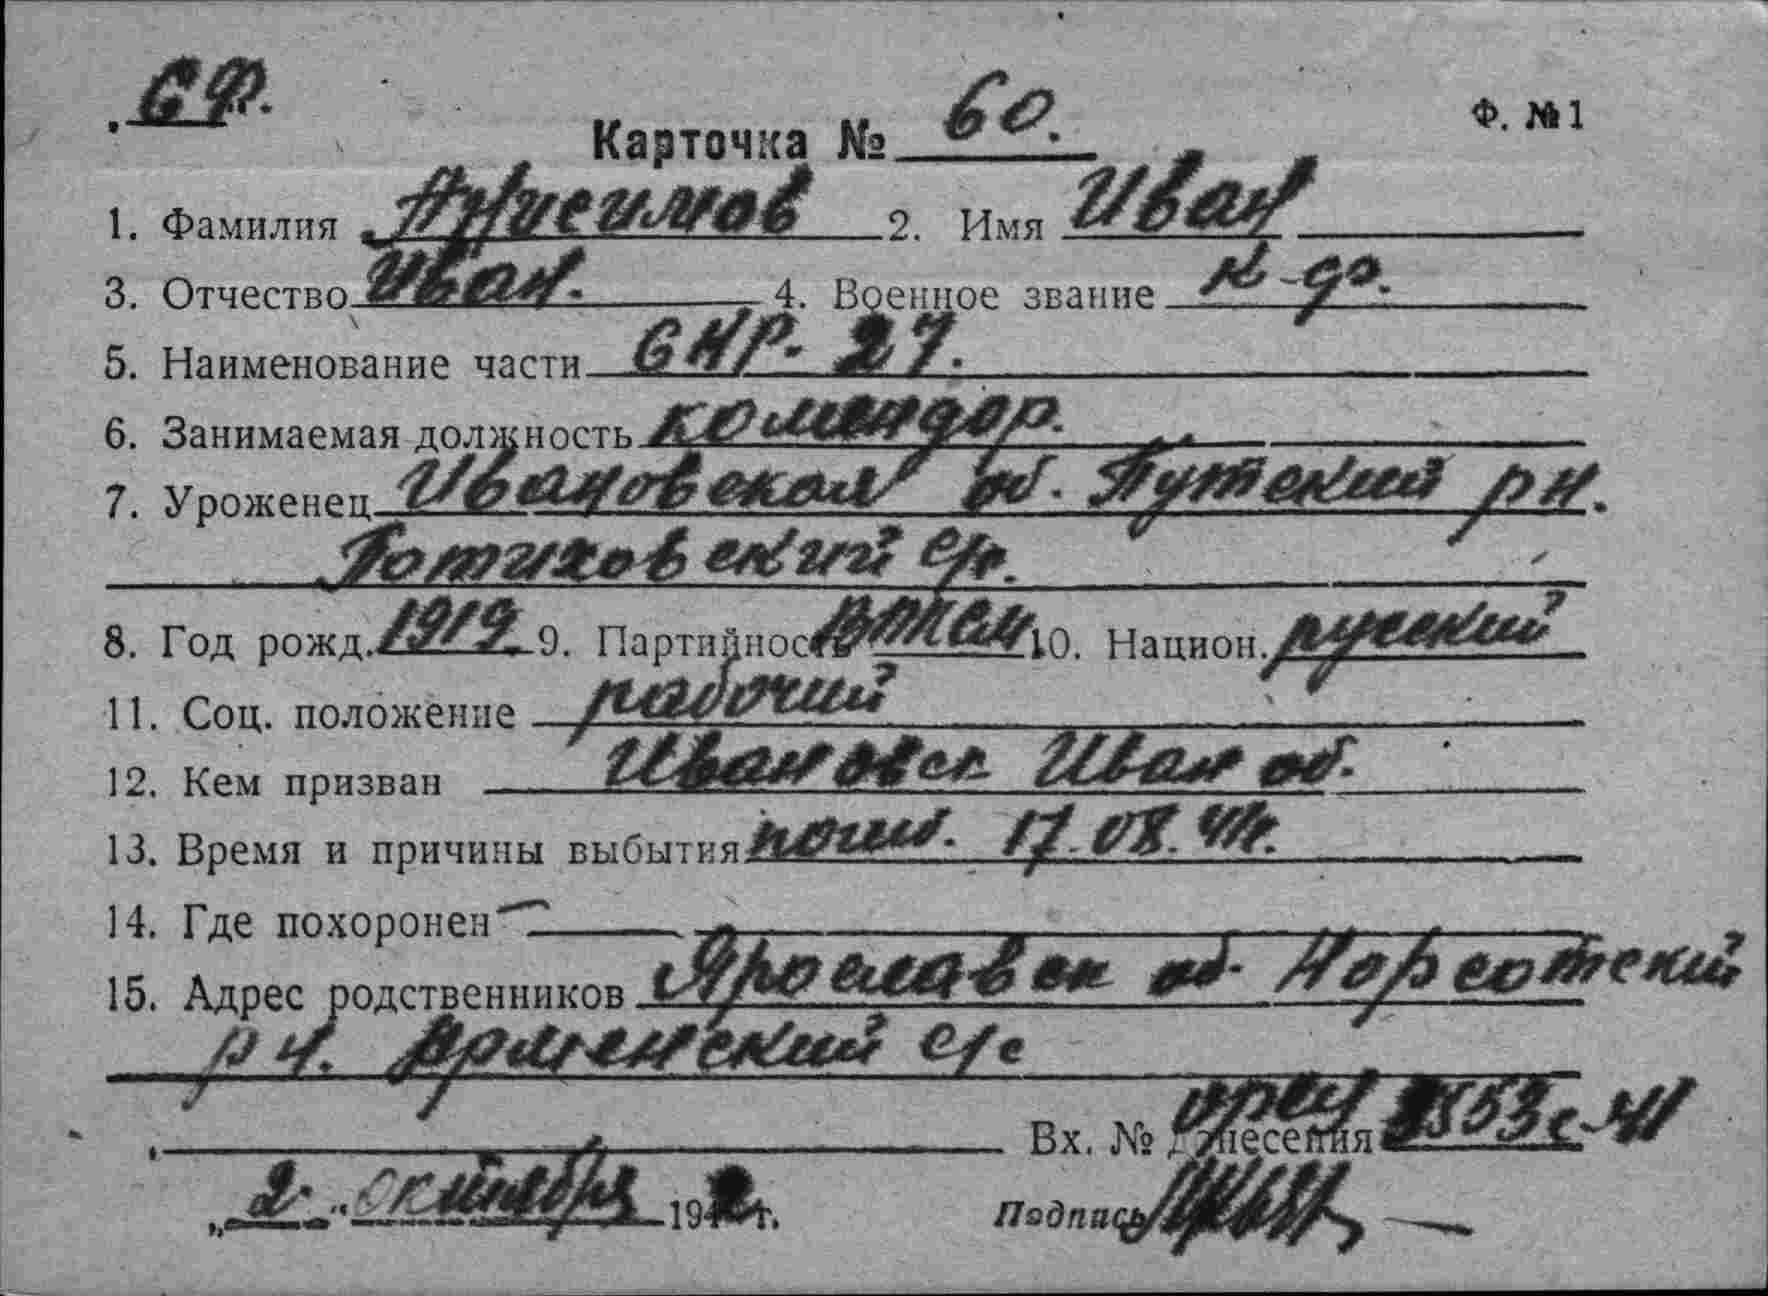 СФ.
Ф. №1
Карточка № 60.
1. Фамилия Анисимов 2. Имя Иван
3. Отчество Иван. 4. Военное звание
5. Наименование части СНР. 27.
6. Занимаемая должность командор.
7. Уроженец Ивановская об. Путский рн.
Готиховский с/с.
8. Год рожд. 1919. 9. Партийнос 10. Национ. русский
11. Соц. положение рабочий
12. Кем призван Ивановск Иван об.
13. Время и причины выбытия погиб. 17.08.41г.
14. Где похоронен —
15. Адрес родственников Ярославск об.
рн. Арменский с/с
Вх. № донесения 553с-41
„2“ октября 194 г. Подпись